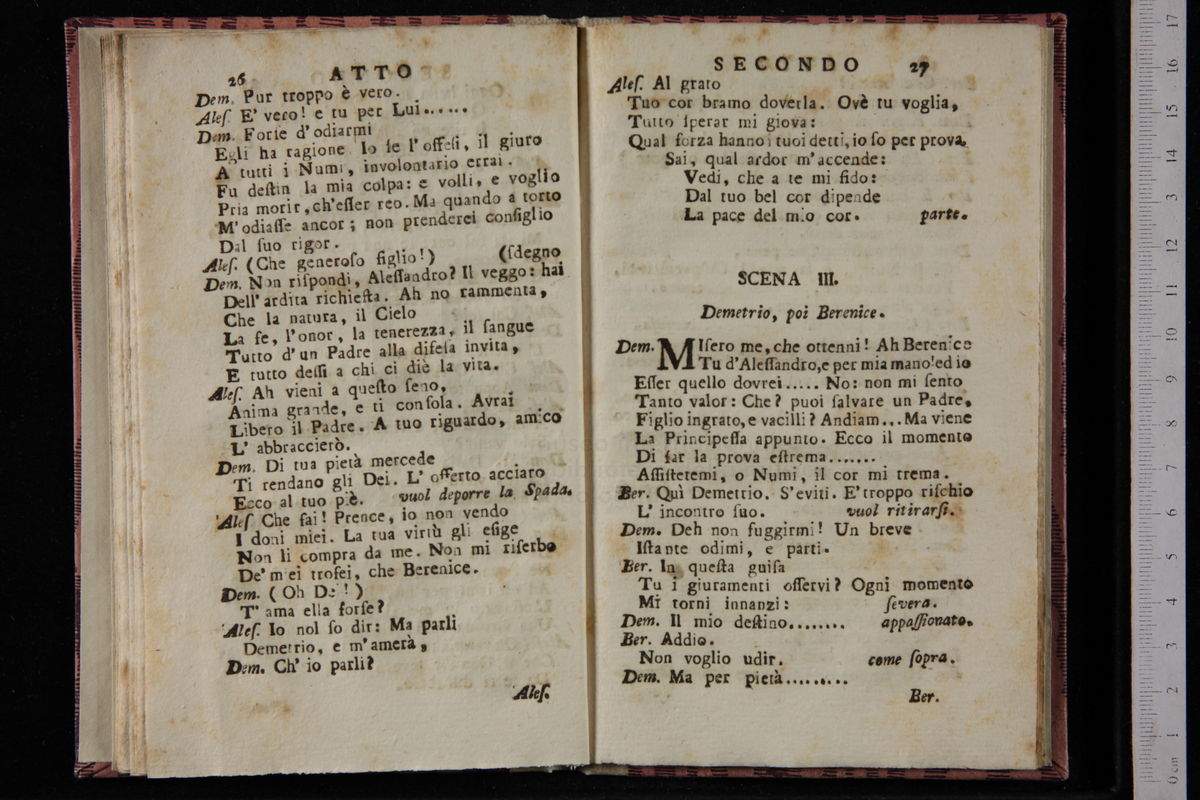 26 ATTO
Dem. Pur troppo è vero.
Aleſ. E' vero! e tu per Lui......
Dem. Forſe d'odiarmi
Egli ha ragione Io ſe l'offeſi, il giuro
A tutti i Numi, involontario errai.
Fu deſtin la mia colpa: e volli, e voglio
Pria morir, ch'eſſer reo. Ma quando a torto
M'odiaſſe ancor; non prenderei conſiglio
Dal ſuo rigor.
Aleſ. (Che generoſo figlio!) (ſdegno
Dem. Non riſpondi, Aleſſandro? Il veggo: hai
Dell'ardita richieſta. Ah no rammenta,
Che la natura, il Cielo
La fe, l'onor, la tenerezza, il ſangue
Tutto d'un Padre alla difeſa invita,
E tutto deſſi a chi ci diè la vita.
Aleſ. Ah vieni a queſto ſeno,
Anima grande, e ti conſola. Avrai
Libero il Padre. A tuo riguardo, amico
L'abbraccierò.
Dem. Di tua pietà mercede
Ti rendano gli Dei. L'offerto acciaro
Ecco al tuo piè. vuol deporre la Spada.
Aleſ Che fai! Prence, io non vendo
I doni miei. La tua virtù gli eſige
Non li compra da me. Non mi riſerbo
De' miei trofei, che Berenice.
Dem. (Oh Dei!)
T'ama ella forſe?
Aleſ. Io nol ſo dir: Ma parli
Demetrio, e m'amerà,
Dem. Ch'io parli?
Aleſ.
SECONDO 27
Aleſ. Al grato
Tuo cor bramo doverla. Ovè tu voglia,
Tutto ſperar mi giova:
Qual forza hanno i tuoi detti, io ſo per prova.
Sai, qual ardor m'accende:
Vedi, che a te mi fido:
Dal tuo bel cor dipende
La pace del mio cor. parte.
SCENA III.
Demetrio, poi Berenice.
Dem. MIſero me, che ottenni! Ah Berenice
Tu d'Aleſſandro, e per mia mano! ed io
Eſſer quello dovrei..... No: non mi ſento
Tanto valor: Che? puoi ſalvare un Padre,
Figlio ingrato, e vacilli? Andiam... Ma viene
La Principeſſa appunto. Ecco il momento
Di far la prova eſtrema.......
Aſſiſtetemi, o Numi, il cor mi trema.
Ber. Quì Demetrio. S'eviti. E' troppo riſchio
L'incontro ſuo. vuol ritirarſi.
Dem. Deh non fuggirmi! Un breve
Iſtante odimi, e parti.
Ber. In queſta guiſa
Tu i giuramenti oſſervi? Ogni momento
Mi torni innanzi: ſevera.
Dem. Il mio deſtino........ appaſſionato.
Ber. Addio.
Non voglio udir. come ſopra.
Dem. Ma per pietà.........
Ber.
0 cm 1 2 3 4 5 6 7 8 9 10 11 12 3 14 15 16 17